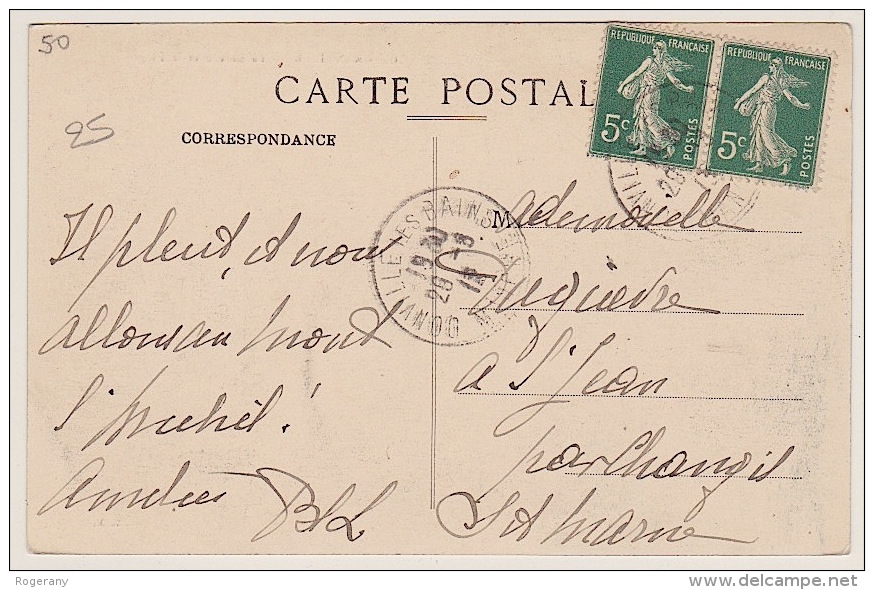 50
25
CARTE POSTAL
CORRESPONDANCE
REPUBLIQUE FRANÇAISE
5c
POSTES
REPUBLIQUE FRANÇAISE
5c
POSTES
DONVILLE LES BAINS
MANCHE
19 30
28 -8
13
Il pleut, et nous
allons au Mont
St Michel!
Amitiés
Mademoiselle
à St Jean
par Changis
S et Marne
Rogerany
delcampe.net